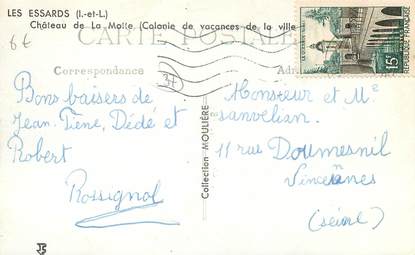 LES ESSARDS (I.-et-L.)
Château de La Motte (Colonie de vacances de la ville
6€
CARTE POSTALE
Correspondance
Adr
Bons baisers de
Jean, Tiene, Dédé et
Robert
Rossignol
Collection MOULIÈRE
Monsieur et Me
sanvelian
11 rue Doumesnil
Vincennes
(seine)
15F
POSTES
REPUBLIQUE FRANÇAISE
37